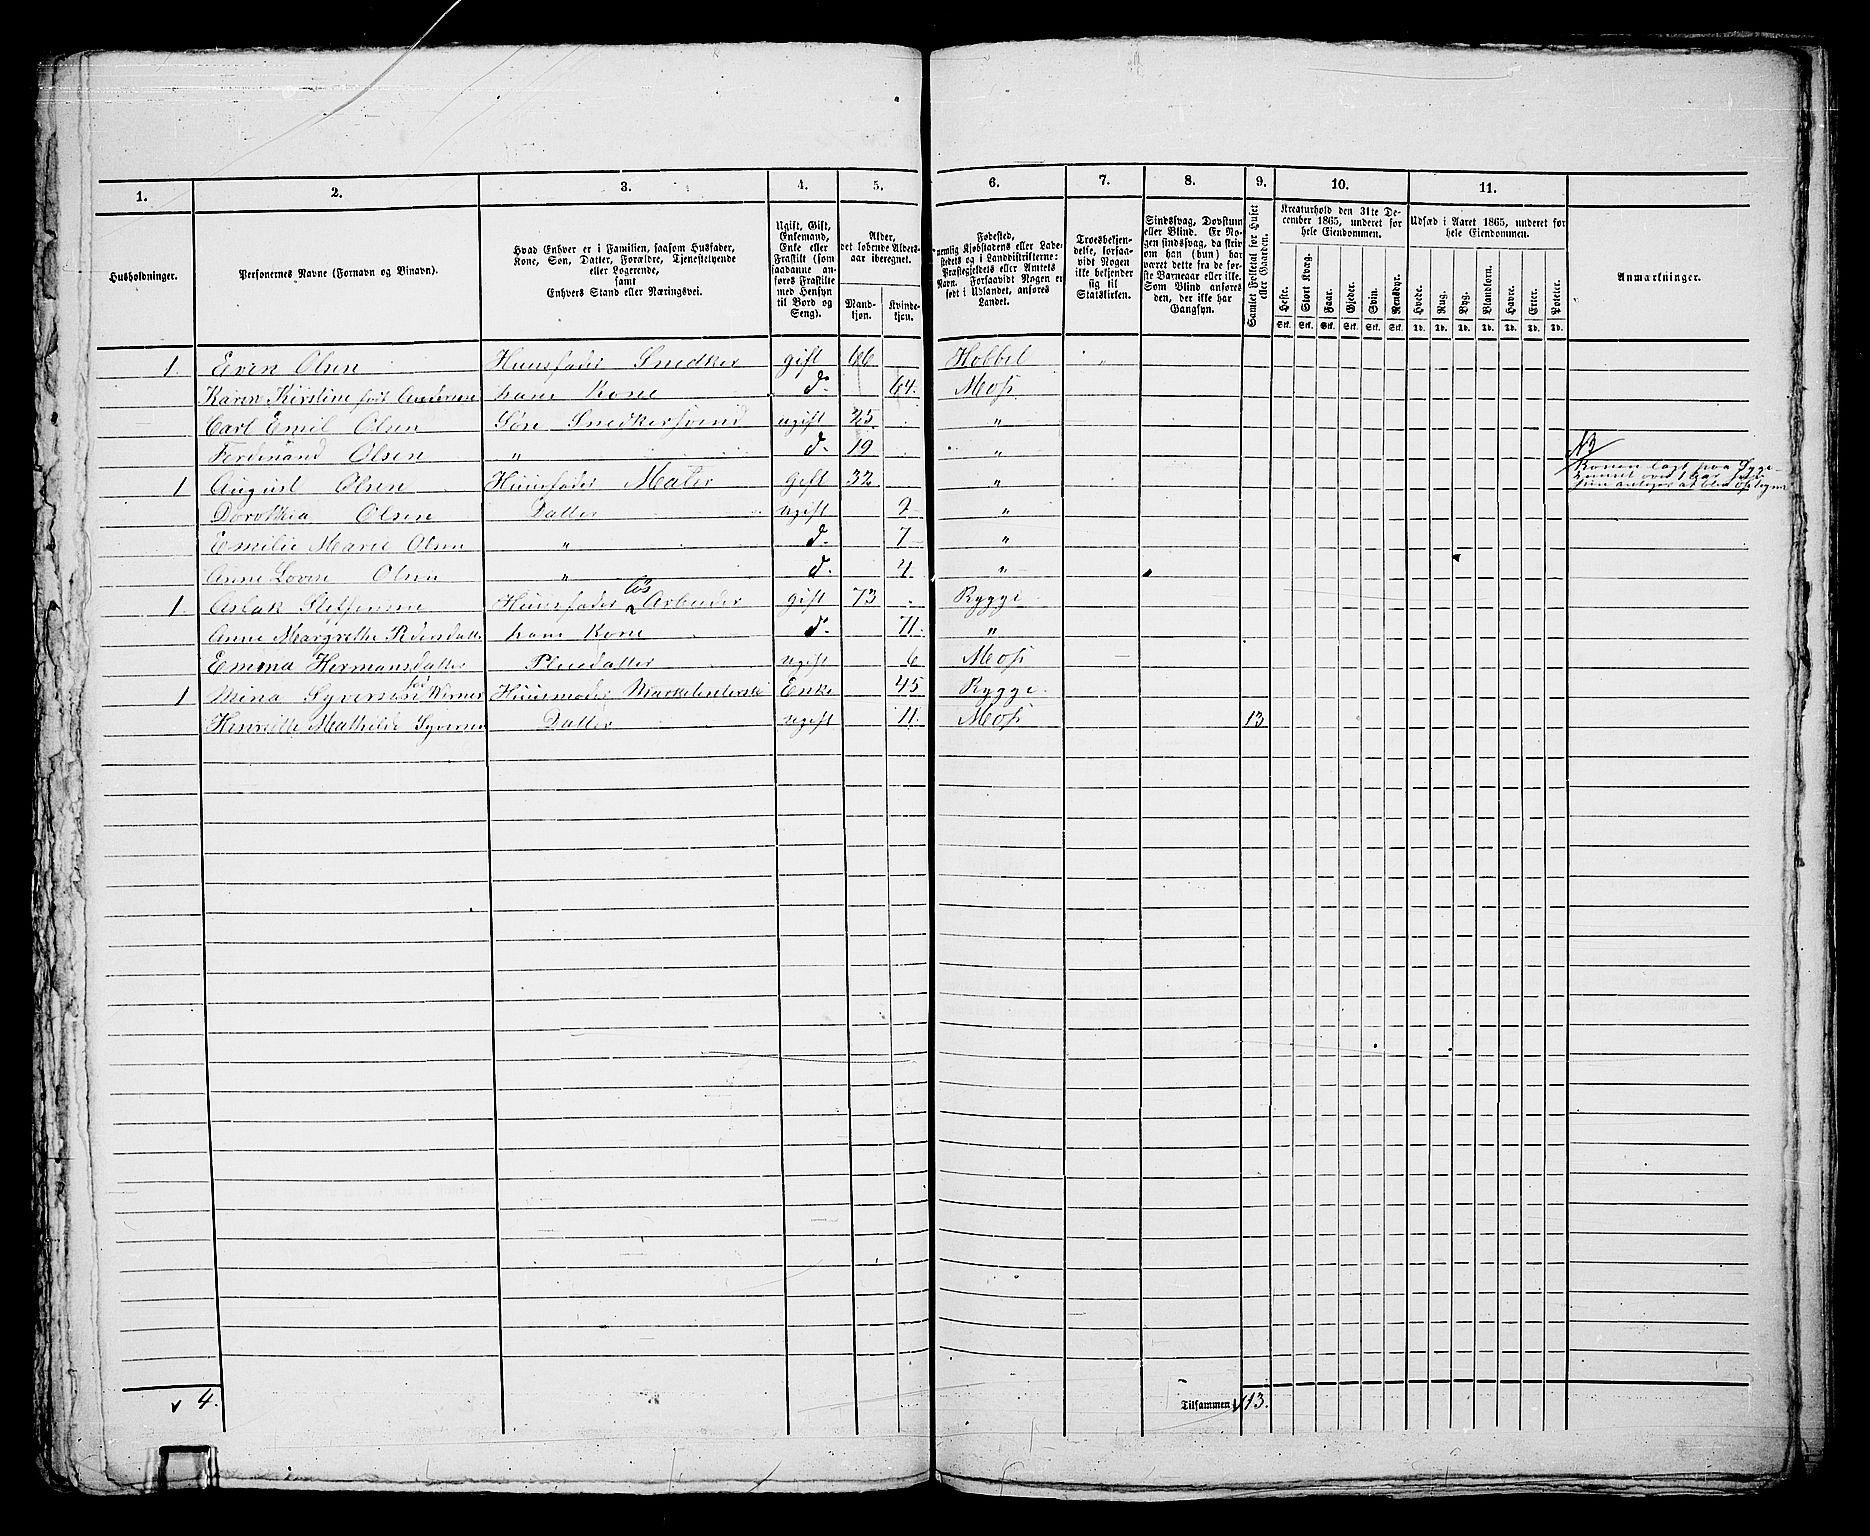 1.
2.
3.
4.
5.
6.
7.
8.
9.
10.
11.
Husholdninger.
Personernes Navne (Fornavn og Binavn).
Hvad Enhver er i Familien, saasom Husfader,
Kone, Søn, Datter, Forældre, Tjenestetyende
eller Logerende,
samt
Enhvers Stand eller Næringsvei.
Ugift, Gift,
Enkemand,
Enke eller
Fraskilt (som
saadanne an-
føres Fraskilte
med Hensyn
til Bord og
Seng).
Alder,
det løbende Alders-
aar iberegnet.
Mand-
kjøn.
Kvinde-
kjøn.
Fødested,
nemlig Kjøbstadens eller Lade-
stedets og i Landdistrikterne:
Præstegjeldets eller Amtets
Navn. Forsaavidt Nogen er
født i Udlandet, anføres
Landet.
Troesbekjen-
delse, forsaa-
vidt Nogen
ikke bekjender
sig til
Statskirken.
Sindssvag, Døvstum
eller Blind. Er No-
gen sindssvag, da skriv
om han (hun) har
været dette fra de før-
ste Barneaar eller ikke.
Som Blind anføres
den, der ikke har
Gangsyn.
Samlet Folketal for Huset
eller Gaarden.
Kreaturhold den 31te De-
cember 1865, underet for
hele Eiendommen.
Heste.
Stort Kvæg.
Faar.
Gjeder.
Svin.
Rensdyr.
Stk. Stk. Stk. Stk. Stk. Stk.
Udsæd i Aaret 1865, underet for
hele Eiendommen.
Hvede.
Rug.
Byg.
Blandkorn.
Havre.
Erter.
Poteter.
Td. Td. Td. Td. Td. Td. Td.
Anmærkninger.
1 Even Olsen Huusfader Snedker gift 66 Hobbel "
Karen Kirstine født Andersen hans Kone d. 64. Moss
Carl Emil Olsen Søn Snedkersvend ugift 25 "
Ferdinand Olsen " d. 19 "
NB
1 August Olsen Huusfader Maler gift 32 "
Konen lagt paa Syge-
Dorothea Olsen Datter ugift 9 "
Emilie Marie Olsen " d. 7 "
Anne Lovise Olsen " d. 4. "
1. Aslak Steffensen Huusfader løs Arbeider gift 73 Rygge
Anne Margrethe Pedersdatter hans Kone d. 71. "
Emma Hermansdatter Pleiedatter ugift 6 Moss
1 Mina Syversen Huusmoder Marketenterske Enke 45 Rygge
Henriette Mathilde Syversen Datter ugift 11. Moss 13
4.
Tilsammen 13.